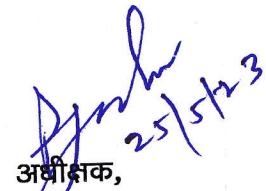 25/5/23
अधीक्षक,